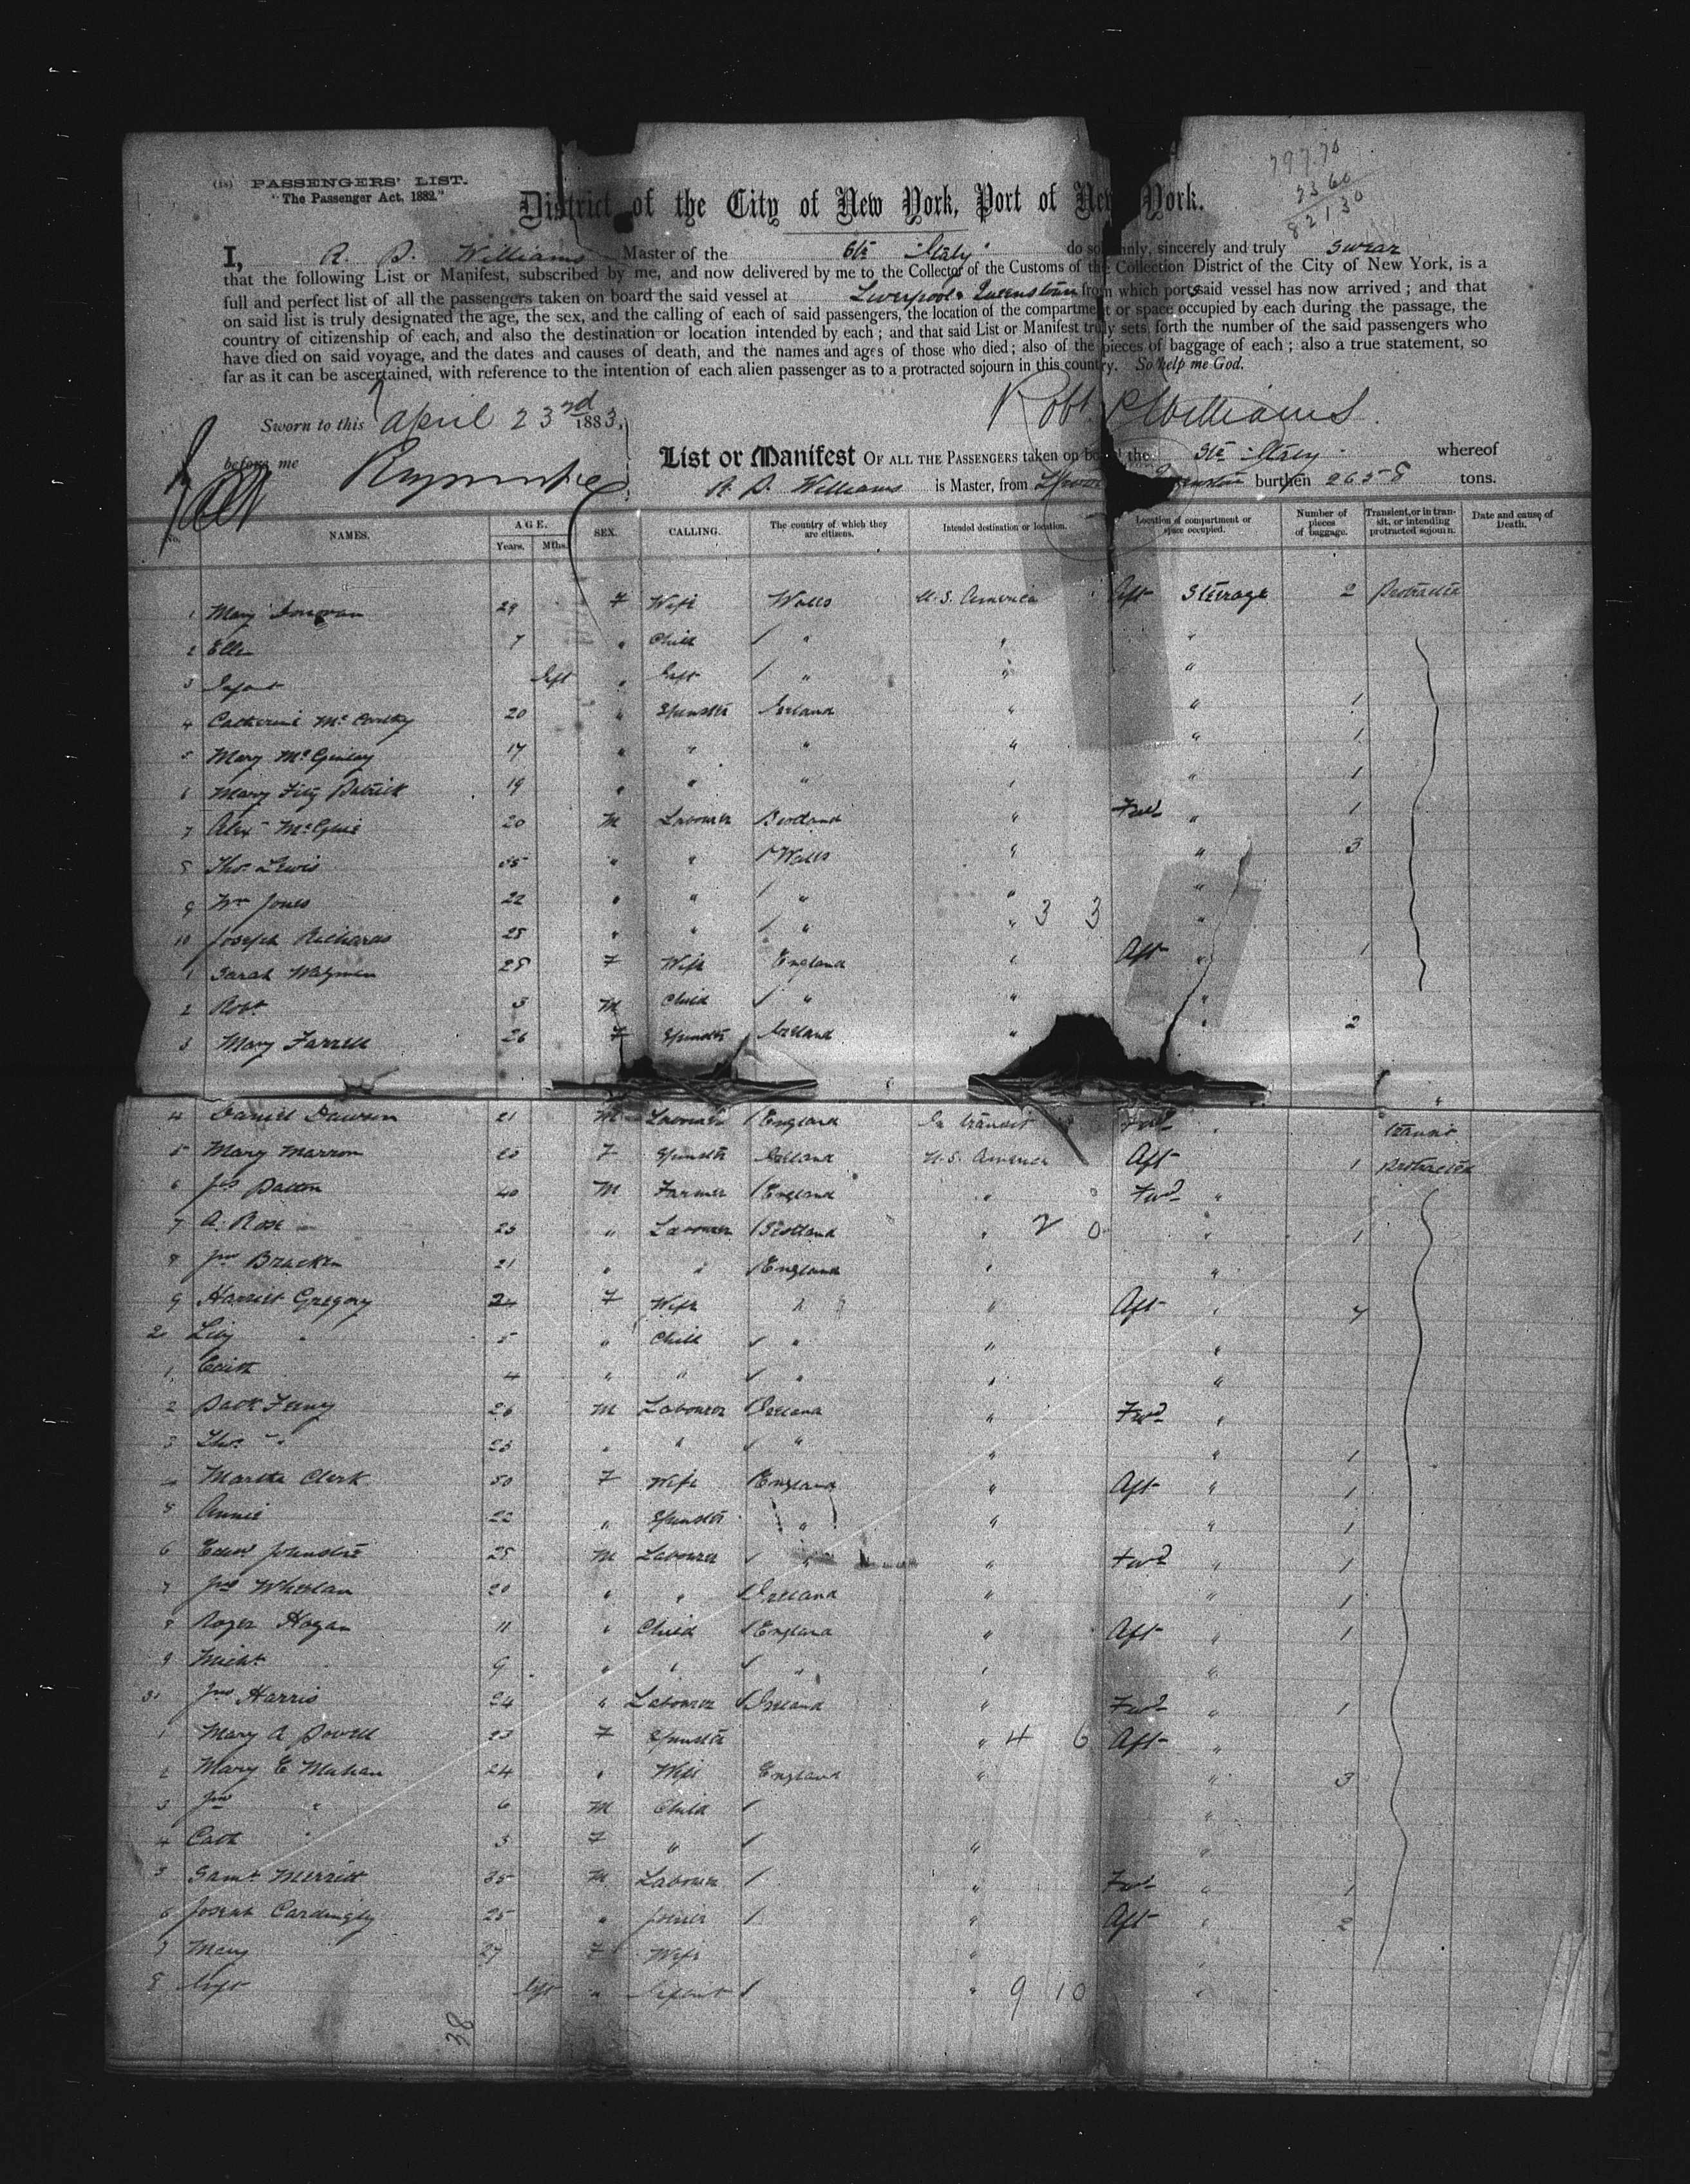 (18) PASSENGERS' LIST.
"The Passenger Act, 1882."
797.70
23 60
821 30
District of the City of New York, Port of New York.
I, R. P. Williams Master of the Str "Italy" do solemnly, sincerely and truly swear
that the following List or Manifest, subscribed by me, and now delivered by me to the Collector of the Customs of the Collection District of the City of New York, is a
full and perfect list of all the passengers taken on board the said vessel at Liverpool & Queenstown from which ports said vessel has now arrived; and that
on said list is truly designated the age, the sex, and the calling of each of said passengers, the location of the compartment or space occupied by each during the passage, the
country of citizenship of each, and also the destination or location intended by each; and that said List or Manifest truly sets forth the number of the said passengers who
have died on said voyage, and the dates and causes of death, and the names and ages of those who died; also of the pieces of baggage of each; also a true statement, so
far as it can be ascertained, with reference to the intention of each alien passenger as to a protracted sojourn in this country. So help me God.
Sworn to this April 23rd 1883,
Robt P Williams
before me
List or Manifest OF ALL THE PASSENGERS taken on board the Str "Italy" whereof
R. P. Williams is Master, from burthen 2658 tons.
No. NAMES. AGE. Years. Mths. SEX. CALLING. The country of which they are citizens. Intended destination or location. Location of compartment or space occupied. Number of pieces of baggage. Transient, or in transit, or intending protracted sojourn. Date and cause of Death.
1 Mary Donovan 29 F Wife Wales U.S. America Aft Steerage 2 Protracted
2 Ellen 7 " Child / " " "
3 Infant Inft " Inft / " " "
4 Catherine McCarthy 20 " Spinster Ireland " " 1
5 Mary McGinley 17 " " " " " 1
6 Mary Fitz Patrick 19 " " " " " 1
7 Alex McGhie 20 M Labourer Scotland " Fwd " 1
8 Thos Lewis 35 " " / Wales " " 3
9 Wm Jones 22 " " / " " "
10 Joseph Richards 25 " " / " " 3 3 "
1 Sarah Waymen 28 F Wife England " Aft " 1
2 Robt 3 M Child / " " "
3 Mary Farrell 26 F Spinster Ireland " " 2
4 Daniel Dawson 21 M Labourer / England In transit Fwd " transit
5 Mary Marron 20 F Spinster Ireland U.S. America Aft 1 Protracted
6 Jas Dalton 40 M Farmer / England " Fwd "
7 A. Rose 25 " Labourer / Scotland " 2 0 " 1
8 Jno Bracken 21 " " / England " "
9 Harriet Gregory F Wife " " Aft " 7
20 Lily " 5 " Child / " " "
1 Edith 4 " " / " " "
2 Patk Feeny 26 M Labourer / Ireland " Fwd "
3 Thos " 25 " " / " " " 1
4 Martha Clerk 50 F Wife England " Aft " 1
5 Annie 22 " Spinster " " " 1
6 Edwd Johnstone 25 M Labourer / " " Fwd " 1
7 Jno Whelan 20 " " / Ireland " " 1
8 Roger Hogan 11 " Child / England " Aft " 1
9 Michl 9 " " / " " "
30 Jno Harris 24 " Labourer / Ireland " Fwd " 1
1 Mary A Powell 23 F Spinster " 4 6 Aft "
2 Mary E Mahan 24 " Wife England " " 3
3 Jno " 6 M Child / "
4 Cath " 3 F " / " "
5 Saml Merritt 35 M Labourer / " Fwd " 1
6 Josiah Cardingly 25 " Joiner / " Aft " 2
7 Mary 27 F Wife " "
8 Inft Inft " Infant / " 9 10 "
38